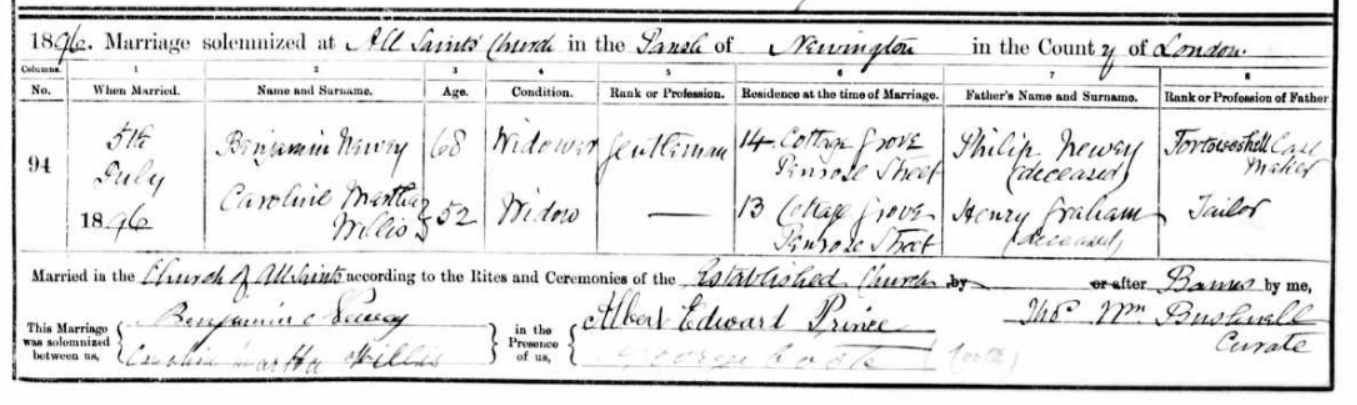 1896. Marriage solemnized at All Saints' Church in the Parish of Newington in the County of London.
Columns. 1 2 3 4 5 6 7 8
No. When Married. Name and Surname. Age. Condition. Rank or Profession. Residence at the time of Marriage. Father's Name and Surname. Rank or Profession of Father
94
5th
July
1896
Benjamin Newey 68 Widower Gentleman 14 Cottage Grove
Penrose Street
Philip Newey
(deceased)
Tortoiseshell Case
Maker
Caroline Martha
Willis
52 Widow — 13 Cottage Grove
Penrose Street
Henry Graham
(deceased)
Tailor
Married in the Church of All Saints according to the Rites and Ceremonies of the Established Church by or after Banns by me,
This Marriage
was solemnized
between us,
Benjamin Newey
Caroline Martha Willis
in the
Presence
of us,
Albert Edward Prince
George
Thos Wm Bushnell
Curate